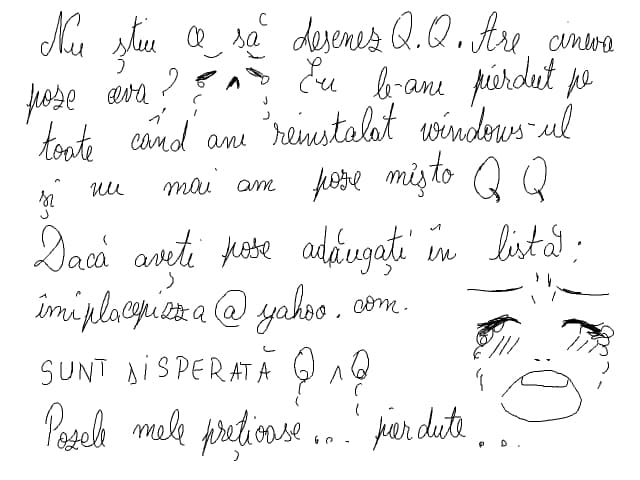 Nu știu ce să desenez Q.Q. Are cineva
poze ceva? Eu le-am pierdut pe
toate când am reinstalat windows-ul
și nu mai am poze mișto Q Q
Dacă aveți poze adăugați în listă:
îmiplacepizza@yahoo.com.
SUNT DISPERATĂ Q ^ Q
Pozele mele prețioase... pierdute...